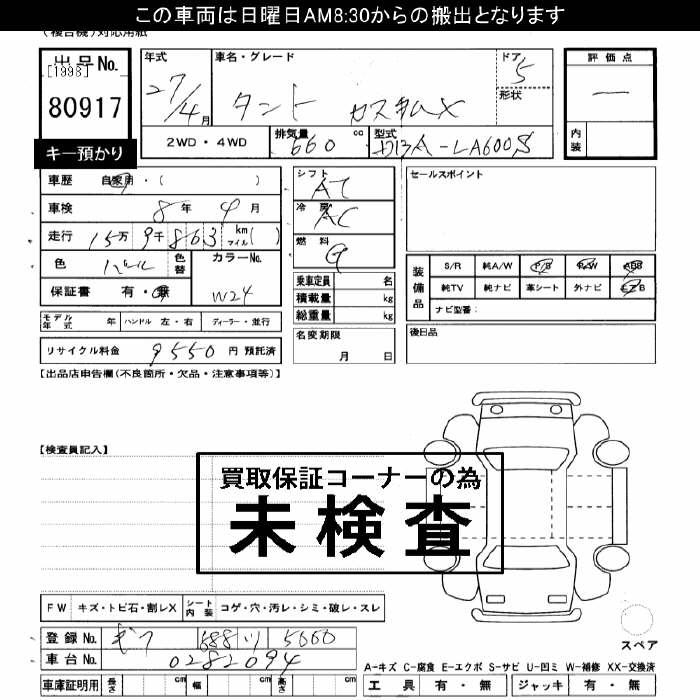 この車両は日曜日AM8:30からの搬出となります
(複合機)対応用紙
出品No.
[1998]
80917
キー預かり
年式 27/4月
車名・グレード タント カスタムX
ドア 5
形状
評価点
内装
2WD・4WD
排気量 660 cc
型式 DBA-LA600S
車歴 自家用・( )
車検 8年4月
走行 15万9千863 km マイル( )
色 パール 色替
カラーNo. W24
保証書 有・無
モデル年式 年 ハンドル 左・右 ディーラー・並行
リサイクル料金 9550 円 預託済
シフト AT
冷房 AC
燃料 G
乗車定員 名
積載量 kg
総重量 kg
名変期限 月 日
セールスポイント
装備品
S/R 純A/W P/S P/W ABS
純TV 純ナビ 革シート 外ナビ
ナビ型番:
後日品
【出品店申告欄(不良箇所・欠品・注意事項等)】
【検査員記入】
買取保証コーナーの為
未検査
FW キズ・トビ石・割レX シート内装 コゲ・穴・汚レ・シミ・破レ・スレ
登録No. 5660
車台No. 0282094
車庫証明用 長さ cm 幅 cm 高さ cm
スペア
A-キズ C-腐食 E-エクボ S-サビ U-凹ミ W-補修 XX-交換済
工具 有・無 ジャッキ 有・無